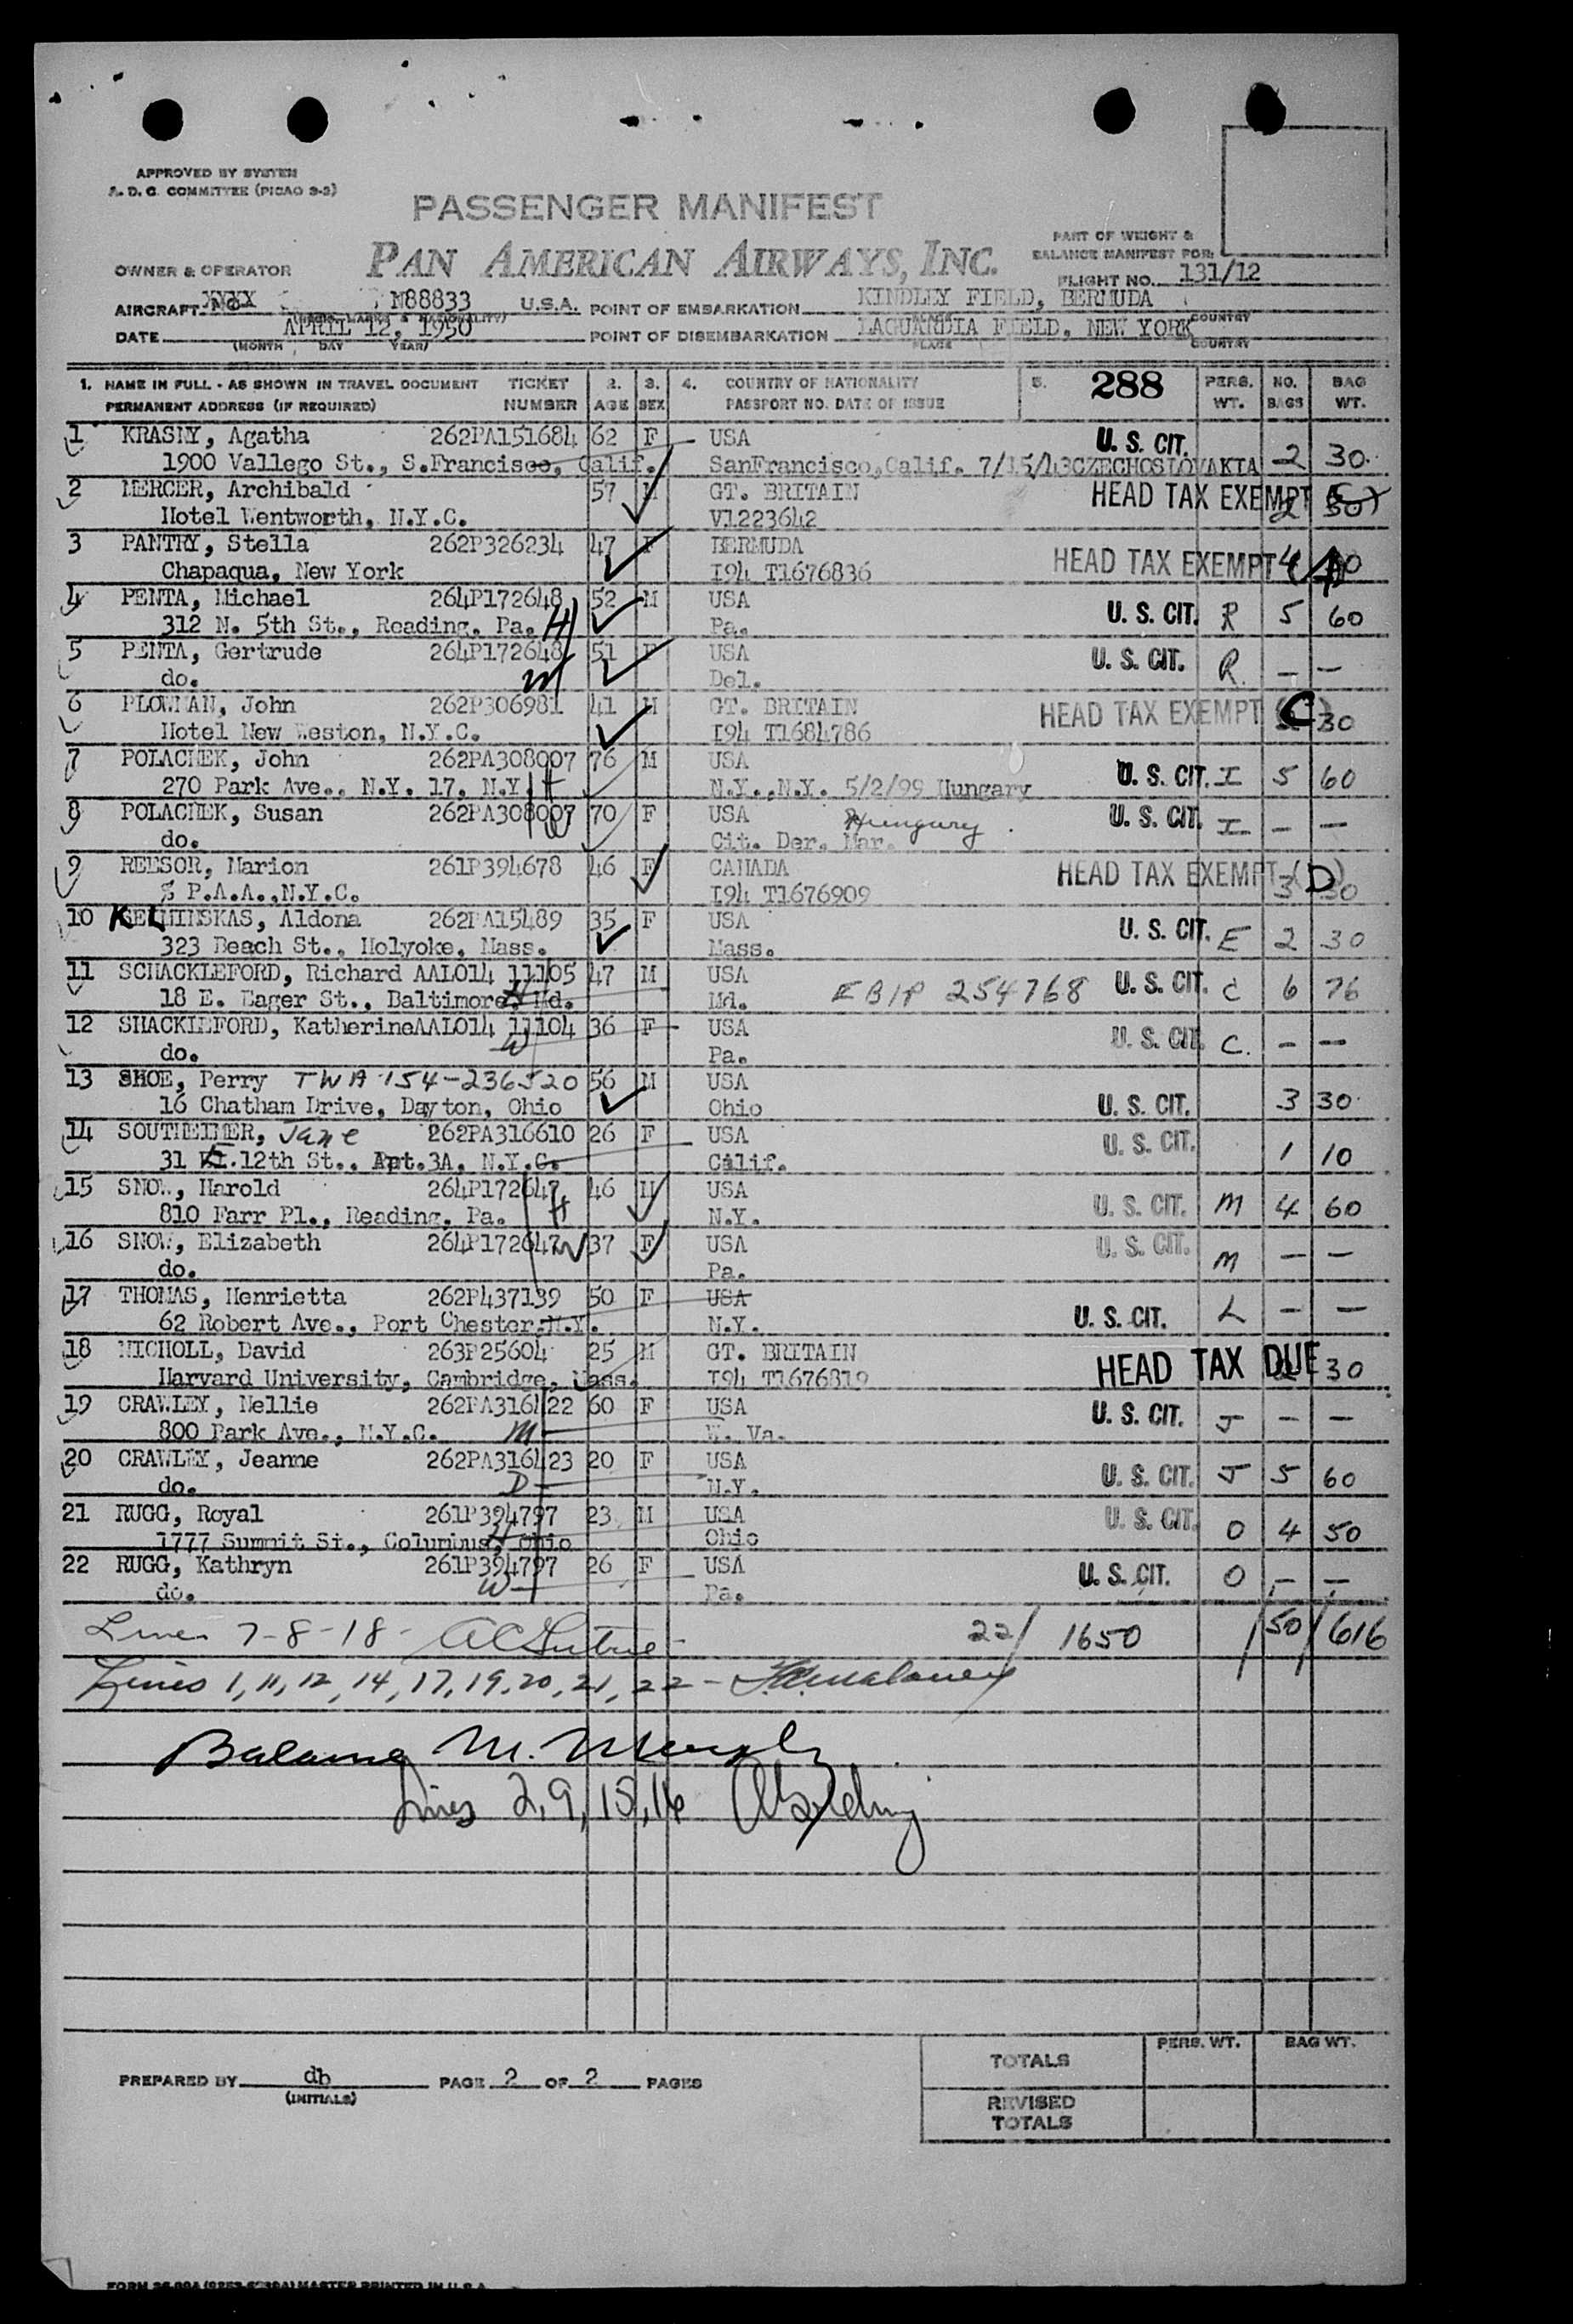 APPROVED BY SYSTEM
A. D. C. COMMITTEE (PICAO 3-3)
PASSENGER MANIFEST
PAN AMERICAN AIRWAYS, INC.
PART OF WEIGHT &
BALANCE MANIFEST FOR:
OWNER & OPERATOR
FLIGHT NO. 131/12
AIRCRAFT NO XXXX N88833 U.S.A. POINT OF EMBARKATION KINDLEY FIELD, BERMUDA
DATE APRIL 12, 1950 POINT OF DISEMBARKATION LAGUARDIA FIELD, NEW YORK COUNTRY
(MONTH DAY YEAR) PLACE COUNTRY
1. NAME IN FULL - AS SHOWN IN TRAVEL DOCUMENT TICKET 2. 3. 4. COUNTRY OF NATIONALITY 5. 288 PERS. NO. BAG
PERMANENT ADDRESS (IF REQUIRED) NUMBER AGE SEX PASSPORT NO. DATE OF ISSUE WT. BAGS WT.
1 KRASNY, Agatha 262PA151684 62 F USA U. S. CIT. 2 30
1900 Vallego St., S.Francisco, Calif. SanFrancisco, Calif. 7/15/43 CZECHOSLOVAKIA
2 MERCER, Archibald 57 M GT. BRITAIN HEAD TAX EXEMPT 2
Hotel Wentworth, N.Y.C. V1223642
3 PANTRY, Stella 262P326234 47 F BERMUDA HEAD TAX EXEMPT 4
Chapaqua, New York I94 T1676836
4 PENTA, Michael 264P172648 52 M USA U. S. CIT. R 5 60
312 N. 5th St., Reading, Pa. H Pa.
5 PENTA, Gertrude 264P172648 51 F USA U. S. CIT. R. — —
do. W Del.
6 PLOWMAN, John 262P306981 41 M GT. BRITAIN HEAD TAX EXEMPT C 30
Hotel New Weston, N.Y.C. I94 T1684786
7 POLACHEK, John 262PA308007 76 M USA U. S. CIT. I 5 60
270 Park Ave., N.Y. 17, N.Y. H N.Y.,N.Y. 5/2/99 Hungary
8 POLACHEK, Susan 262PA308007 70 F USA Hungary U. S. CIT. I — —
do. W Cit. Der. Mar.
9 REESOR, Marion 261P394678 46 F CANADA HEAD TAX EXEMPT (D) 3 30
% P.A.A.,N.Y.C. I94 T1676909
10 KELMINSKAS, Aldona 262PA15489 35 F USA U. S. CIT. E 2 30
323 Beach St., Holyoke, Mass. Mass.
11 SCHACKLEFORD, Richard AAL014 11105 47 M USA EBIP 254768 U. S. CIT. C 6 76
18 E. Eager St., Baltimore, Md. H Md.
12 SHACKLEFORD, Katherine AAL014 11104 36 F USA U. S. CIT. C. — —
do. W Pa.
13 SHOE, Perry TWA 154-236520 56 M USA U. S. CIT. 3 30
16 Chatham Drive, Dayton, Ohio Ohio
14 SOUTHEIMER, Jane 262PA316610 26 F USA U. S. CIT. 1 10
31 E.12th St., Apt.3A, N.Y.C. Calif.
15 SNOW, Harold 264P172647 46 M USA U. S. CIT. M 4 60
810 Farr Pl., Reading, Pa. H N.Y.
16 SNOW, Elizabeth 264P172647 W 37 F USA U. S. CIT. M — —
do. Pa.
17 THOMAS, Henrietta 262P437139 50 F USA U. S. CIT. L — —
62 Robert Ave., Port Chester, N.Y. N.Y.
18 NICHOLL, David 263P25604 25 M GT. BRITAIN HEAD TAX DUE 30
Harvard University, Cambridge, Mass. I94 T1676819
19 CRAWLEY, Nellie 262PA316422 60 F USA U. S. CIT. J — —
800 Park Ave., N.Y.C. M W. Va.
20 CRAWLEY, Jeanne 262PA316423 20 F USA U. S. CIT. J 5 60
do. D N.Y.
21 RUGG, Royal 261P394797 23 M USA U. S. CIT. O 4 50
1777 Summit St., Columbus, Ohio H Ohio
22 RUGG, Kathryn 261P394797 26 F USA U. S. CIT. O — —
do. W Pa.
Lines 7-8-18- 22/ 1650 /50/616
Lines 1, 11, 12, 14, 17, 19, 20, 21, 22 -
Balance M. Murphy
Lines 2, 9, 15, 16
TOTALS PERS. WT. BAG WT.
PREPARED BY db PAGE 2 OF 2 PAGES
(INITIALS)
REVISED
TOTALS